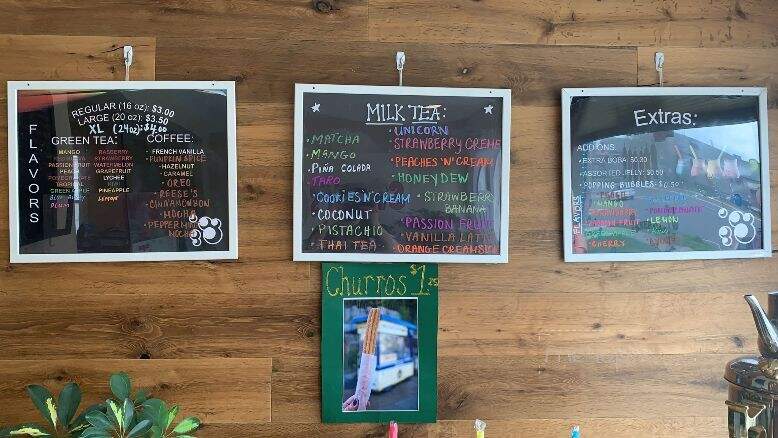 REGULAR (16 oz): $3.00
LARGE (20 oz): $3.50
XL (24oz): $4.00
FLAVORS
GREEN TEA:
MANGO
PASSION FRUIT
PEACH
POMEGRANATE
TROPICAL
GREEN APPLE
PLUM
RASBERRY
STRAWBERRY
WATERMELON
GRAPEFRUIT
LYCHEE
KIWI
PINEAPPLE
LEMONE
COFFEE:
FRENCH VANILLA
PUMPKIN SPICE
HAZELNUT
CARAMEL
OREO
REESE'S
CINNAMOWSWON
MOCHA
PEPPERMINT
MOCHA
MILK TEA:
MATCHA
MANGO
PIÑA COLADA
TARO
COOKIES'N'CREAM
COCONUT
PISTACHIO
THAI TEA
UNICORN
STRAWBERRY CREME
PEACHES 'N' CREAM
HONEYDEW
STRAWBERRY
BANANA
PASSION FRUIT
VANILLA LATTE
ORANGE CREAMSICLE
Extras:
ADD ONS:
EXTRA BOBA: $0.50
ASSORTED JELLY: $0.50
POPPING BUBBLES: $0.50
FLAVORS
MANGO
STRAWBERRY
PASSION FRUIT
CHERRY
POMEGRANATE
LEMON
KIWI
LYCHEE
Churros $1.25